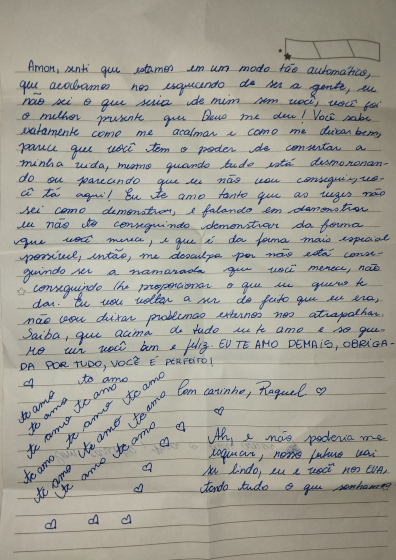 Amor, senti que estamos em um modo tão automático,
que acabamos nos esquecendo de ser a gente, eu
não sei o que seria de mim sem você, você foi
o melhor presente que Deus me deu! Você sabe
exatamente como me acalmar e como me deixar bem,
parece que você tem o poder de consertar a
minha vida, mesmo quando tudo está desmoronan-
do ou parecendo que eu não vou conseguir, vo-
cê tá aqui! Eu te amo tanto que as vezes não
sei como demonstrar, e falando em demonstrar
eu não to conseguindo demonstrar da forma
que você merece, e que é da forma mais especial
possível, então, me desculpa por não está conse-
guindo ser a namorada que você merece, não
conseguindo lhe proporcionar o que eu quero te
dar. Eu vou voltar a ser do jeito que eu era,
não vou deixar problemas externos nos atrapalhar.
Saiba, que acima de tudo eu te amo e so que-
ro ver você bem e feliz. EU TE AMO DEMAIS, OBRIGA-
DA POR TUDO, VOCÊ É PERFEITO!
te amo te amo
te amo te amo te amo
te amo te amo te amo
te amo te amo te amo
te amo te amo te amo
Com carinho, Raquel
Ah, e não poderia me
esquecer, nosso futuro vai
ser lindo, eu e você nos EUA,
tendo tudo o que sonhamos